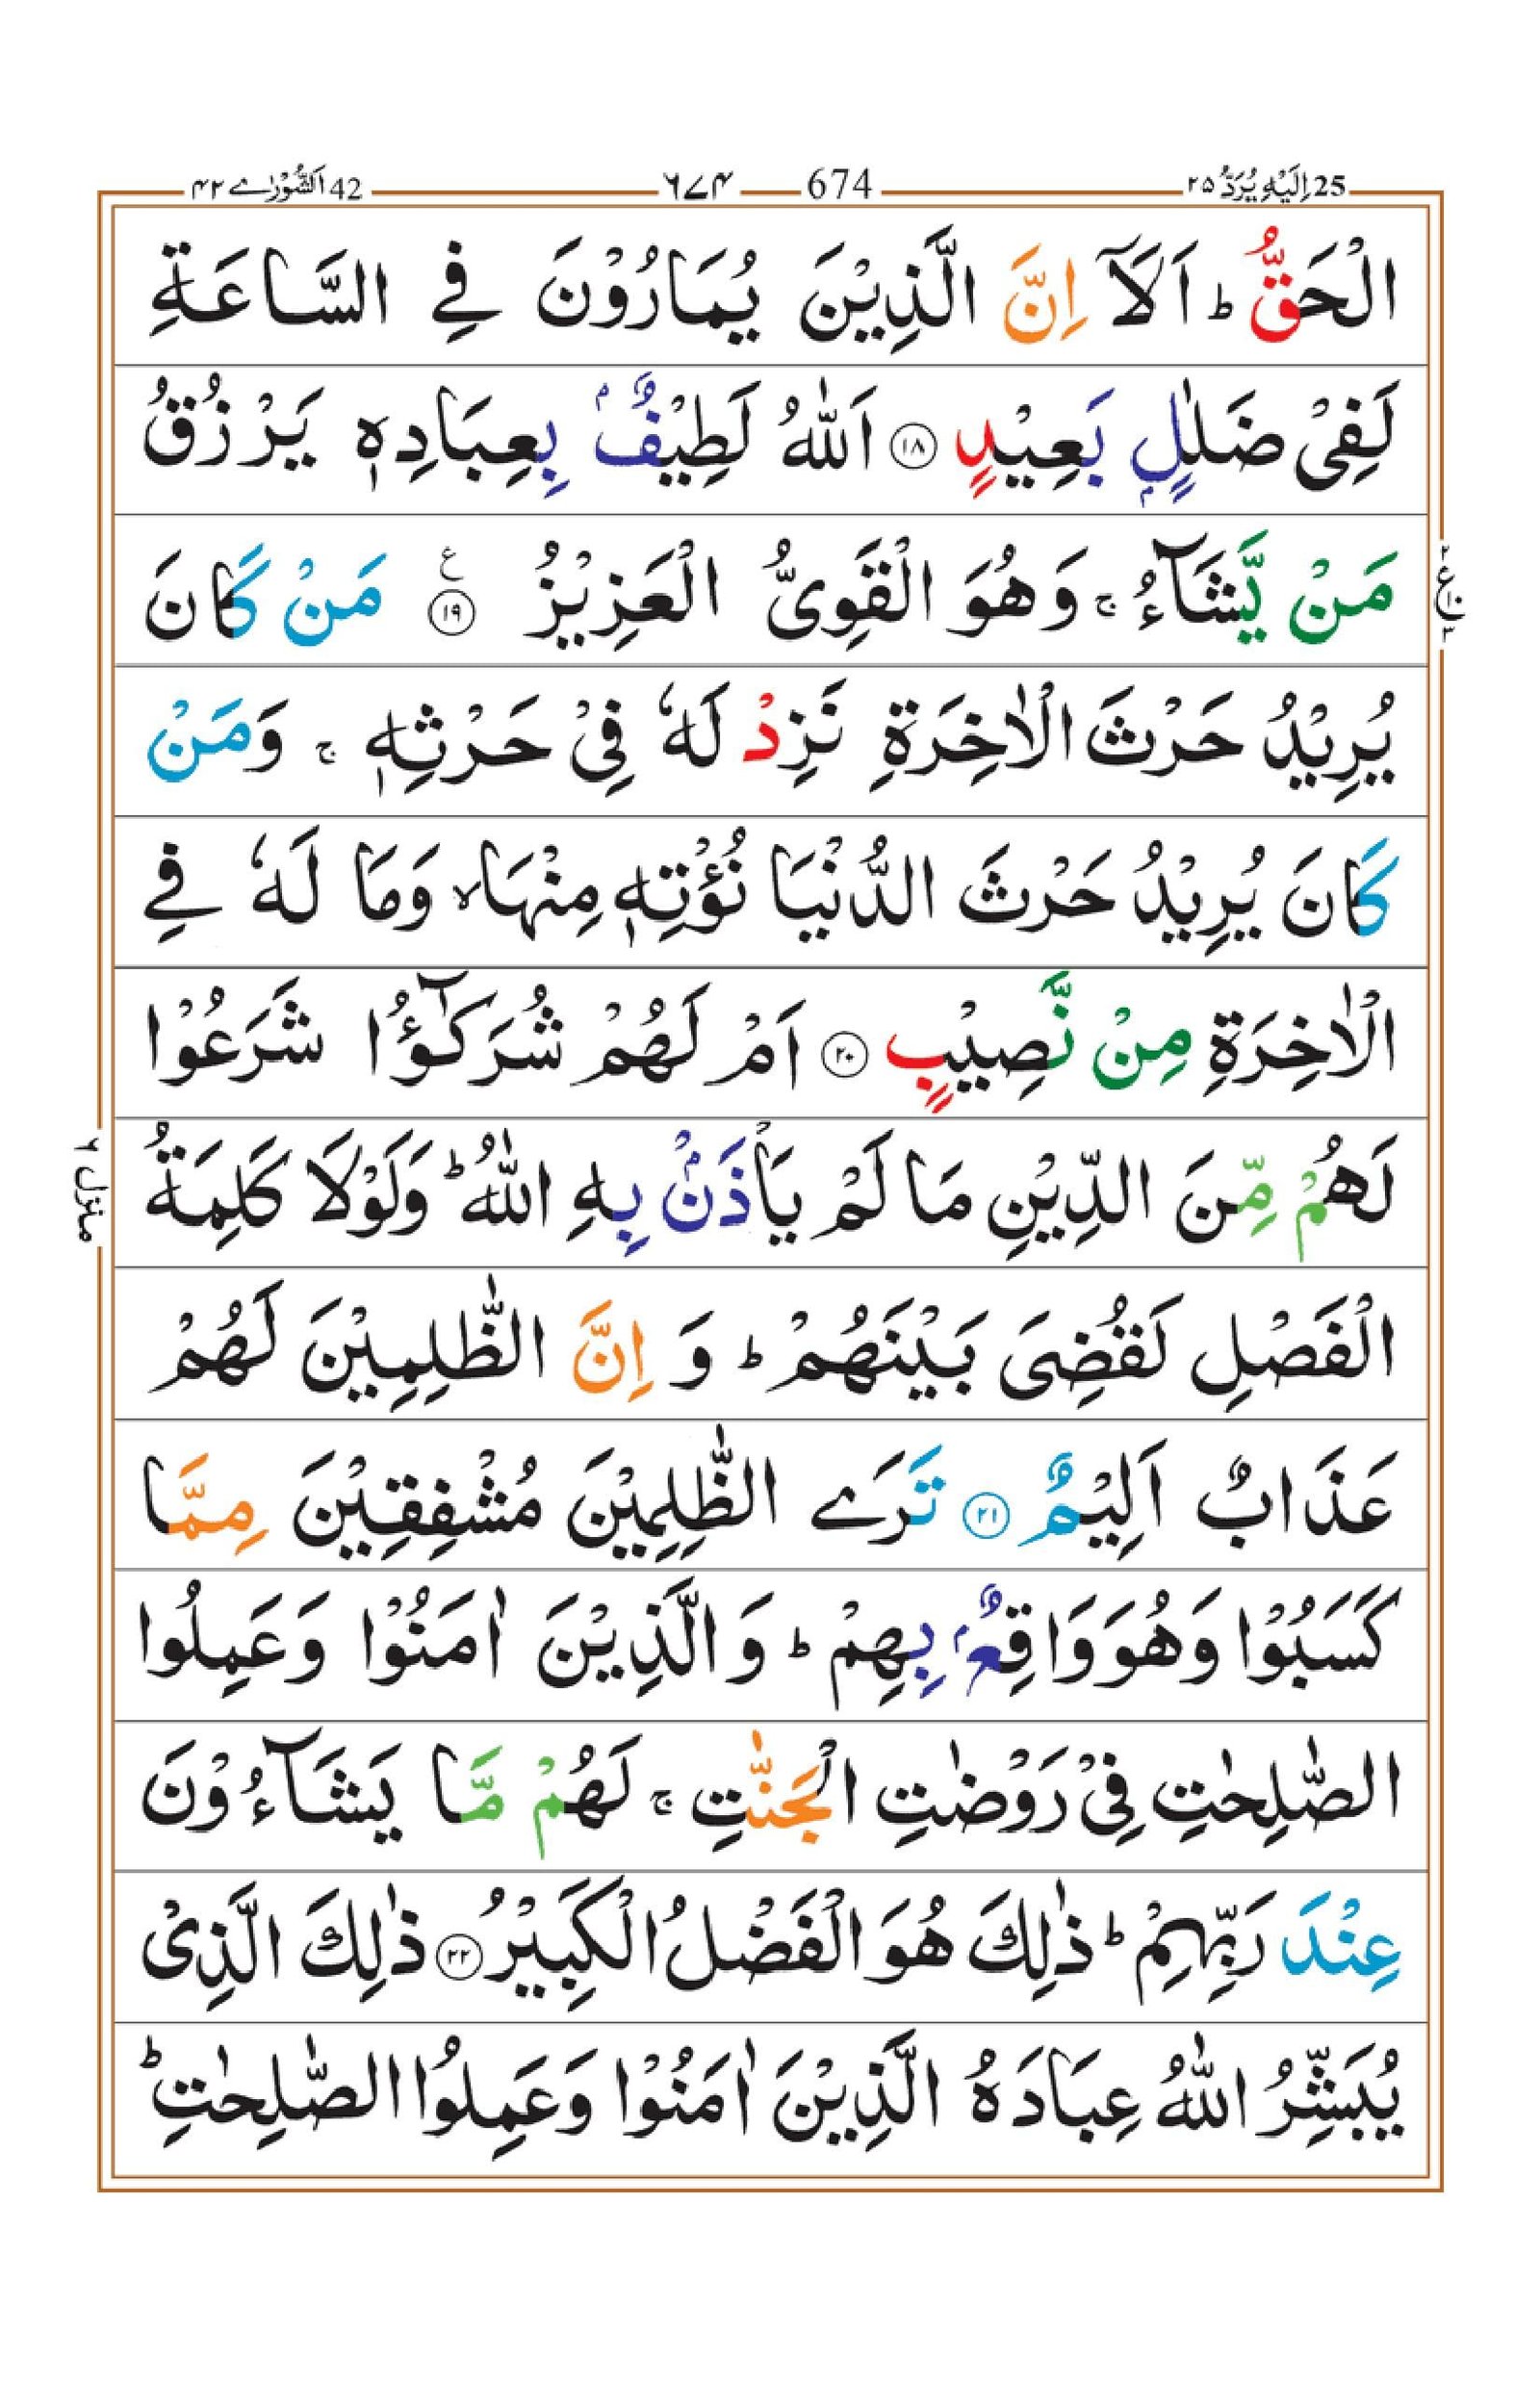 25 اِلَيْهِ يُرَدُّ ٢٥
674 ٦٧۴
42 اَلشُّوْرٰے ۴٢
الْحَقُّ ؕ اَلَاۤ اِنَّ الَّذِيْنَ يُمَارُوْنَ فِے السَّاعَةِ
لَفِىْ ضَلٰلٍۭ بَعِيْدٍ ١٨ اَللّٰهُ لَطِيْفٌۢ بِعِبَادِهٖ يَرْزُقُ
مَنْ يَّشَآءُ ۚ وَهُوَ الْقَوِىُّ الْعَزِيْزُ ١٩ ع مَنْ كَانَ
ع
يُرِيْدُ حَرْثَ الْاٰخِرَةِ نَزِدْ لَهٗ فِىْ حَرْثِهٖ ۚ وَمَنْ
كَانَ يُرِيْدُ حَرْثَ الدُّنْيَا نُؤْتِهٖ مِنْهَا ۙ وَمَا لَهٗ فِے
الْاٰخِرَةِ مِنْ نَّصِيْبٍ ٢٠ اَمْ لَهُمْ شُرَكٰٓؤُا شَرَعُوْا
لَهُمْ مِّنَ الدِّيْنِ مَا لَمْ يَاْذَنْۢ بِهِ اللّٰهُ ؕ وَلَوْلَا كَلِمَةُ
منزل ٦
الْفَصْلِ لَقُضِىَ بَيْنَهُمْ ؕ وَ اِنَّ الظّٰلِمِيْنَ لَهُمْ
عَذَابٌ اَلِيْمٌ ٢١ تَرَے الظّٰلِمِيْنَ مُشْفِقِيْنَ مِمَّا
كَسَبُوْا وَهُوَ وَاقِعٌۢ بِهِمْ ؕ وَالَّذِيْنَ اٰمَنُوْا وَعَمِلُوا
الصّٰلِحٰتِ فِىْ رَوْضٰتِ الْجَنّٰتِ ۚ لَهُمْ مَّا يَشَآءُوْنَ
عِنْدَ رَبِّهِمْ ؕ ذٰلِكَ هُوَ الْفَضْلُ الْكَبِيْرُ ٢٢ ذٰلِكَ الَّذِىْ
يُبَشِّرُ اللّٰهُ عِبَادَهُ الَّذِيْنَ اٰمَنُوْا وَعَمِلُوا الصّٰلِحٰتِ ؕ